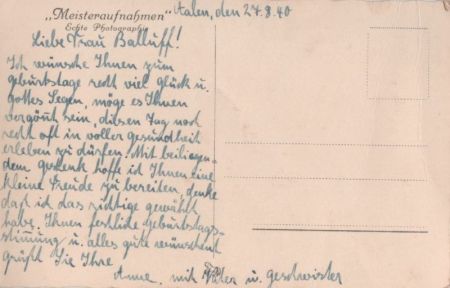 „Meisteraufnahmen"
Echte Photographie
Aalen, den 27.8.40
Liebe Frau Balluff!
Ich wünsche Ihnen zum
Geburtstage recht viel Glück u.
Gottes Segen, möge es Ihnen
vergönnt sein, diesen Tag noch
recht oft in voller Gesundheit
erleben zu dürfen. Mit beiliegen-
dem Geschenk hoffe ich Ihnen eine
kleine Freude zu bereiten, denke
daß ich das richtige gewählt
habe. Ihnen festliche Geburtstags-
stimmung u. alles gute wünschend
grüßt Sie Ihre
Anne. mit Vater u. Geschwister